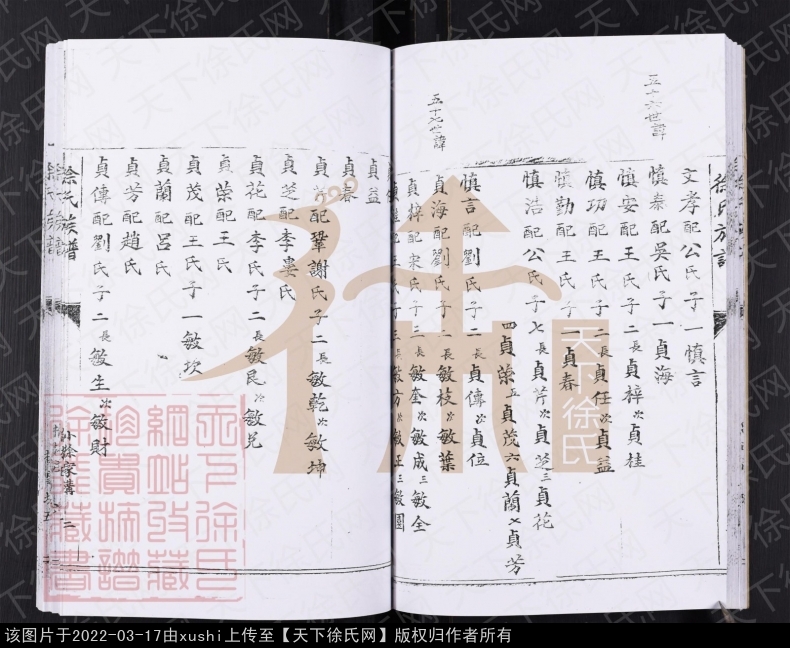 徐氏族譜
五十六世諱
文孝配公氏子一慎言
慎泰配吳氏子一貞海
慎安配王氏子二長貞梓次貞桂
慎功配王氏子二長貞任次貞益
慎勤配王氏子一貞春
慎浩配公氏子七長貞芹次貞芝三貞花
四貞榮五貞茂六貞蘭七貞芳
五十七世諱
慎言配劉氏子二長貞傳次貞位
貞海配王氏子二長敏枝次敏葉
貞梓配宋氏子三長敏奎次敏成三敏全
貞桂配王氏子三長敏方次敏正三敏圓
貞任
貞益
貞春
貞配鞏謝氏子二長敏乾次敏坤
貞芝配李婁氏
貞花配李氏子二長敏民次敏兑
貞榮配王氏
貞茂配王氏子一敏坎
貞蘭配呂氏
貞芳配趙氏
貞傳配劉氏子二長敏生次敏財
徐氏族譜
天下徐氏
天下徐氏
網站收藏
珍貴摘譜
徐雁藏書
天下徐氏网
该图片于2022-03-17由xushi上传至【天下徐氏网】版权归作者所有